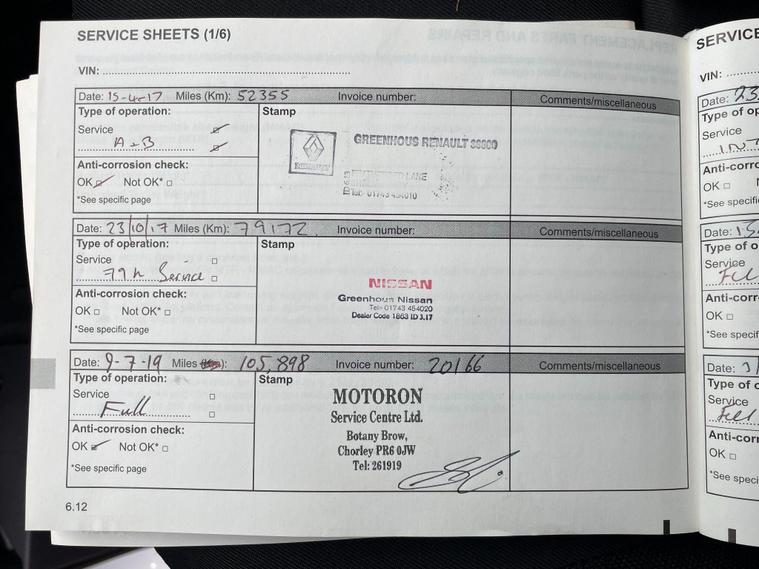 SERVICE SHEETS (1/6)
VIN:
Date: 15-4-17 Miles (Km): 52355 Invoice number: Comments/miscellaneous
Type of operation: Stamp
Service
A+B
GREENHOUS RENAULT
RENAULT
LANE
Tel: 01743 454010
Anti-corrosion check:
OK Not OK*
*See specific page
Date: 23/10/17 Miles (Km): 79172 Invoice number: Comments/miscellaneous
Type of operation: Stamp
Service
79k Service
NISSAN
Greenhous Nissan
Tel:- 01743 454020
Dealer Code 1863 ID 3.17
Anti-corrosion check:
OK Not OK*
*See specific page
Date: 9-7-19 Miles : 105,898 Invoice number: 20166 Comments/miscellaneous
Type of operation: Stamp
Service
Full
MOTORON
Service Centre Ltd.
Botany Brow,
Chorley PR6 0JW
Tel: 261919
Anti-corrosion check:
OK Not OK*
*See specific page
6.12
SERVICE
VIN:
Date: 23
Type of op
Service
INT
Anti-corro
OK
*See specific
Date:
Type of o
Service
Full
Anti-corr
OK
*See specif
Date:
Type of o
Service
Full
Anti-corr
OK
*See speci